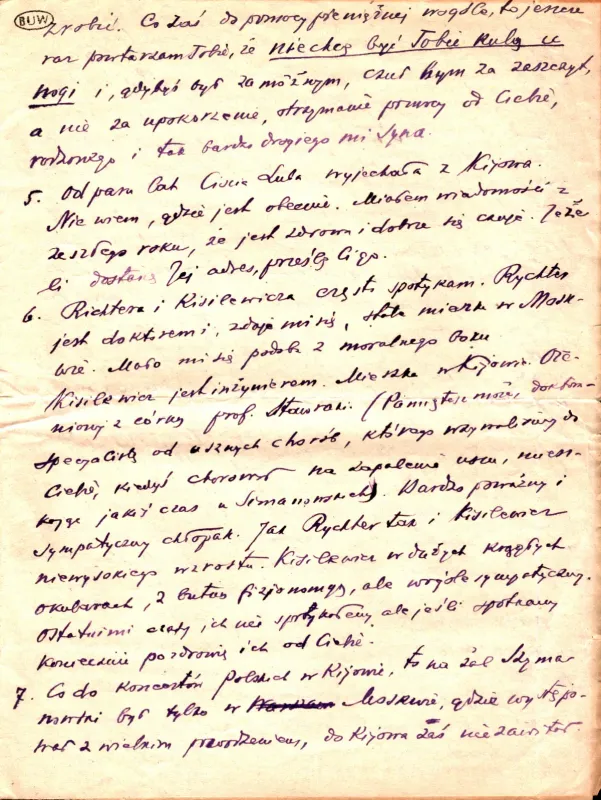 BUW
zrobić. Co zaś do pomocy pieniężnej wogóle, to jeszcze
raz powtarzam Tobie, że niechcę być Tobie kulą u
nogi i, gdybyś był zamożnym, czuł bym za zaszczyt,
a nie za upokorzenie, otrzymanie pomocy od Ciebie,
rodzonego i tak bardzo drogiego mi Syna.
5. Od paru lat Ciocia Lula wyjechała z Kijowa.
Nie wiem, gdzie jest obecnie. Miałem wiadomości z
zeszłego roku, że jest zdrowa i dobrze się czuje. Jeże
li dostanę Jej adres, prześlę Ci go.
6. Richtera i Kisilewicza często spotykam. Rychter
jest doktorem i, zdaje mi się, stale mieszka w Mosk-
wie. Mało mi się podoba z moralnego boku.
Kisilewicz jest inżynierem. Mieszka w Kijowie. Oże-
niony z córką prof. (Pamiętasz może, doktora
specjalistę od usznych chorób, którego wzywaliśmy do
Ciebie, kiedyś chorował na zapalenie ucha, miesz-
kając jakiś czas u Szimanowskich). Bardzo poważny i
sympatyczny chłopak. Jak Rychter tak i Kisilewicz
niewysokiego wzrostu. Kisilewicz w dużych krągłych
okularach, z fizjonomją, ale wogóle sympatyczny.
Ostatnimi czasy ich nie spotykałem, ale jeśli spotkam
koniecznie pozdrowię ich od Ciebie.
7. Co do koncertów Polskich w Kijowie, to na żal Szyma-
nowski był tylko w Moskwie, gdzie występo-
wał z wielkim powodzeniem, do Kijowa zaś nie zawitał.